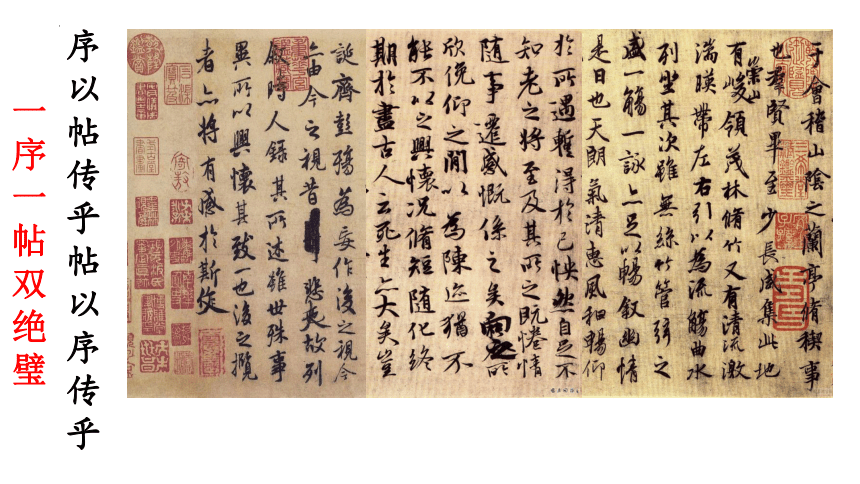 于會稽山陰之蘭亭脩稧事
也羣賢畢至少長咸集此地
有崇山峻領茂林脩竹又有清流激
湍暎帶左右引以為流觴曲水
列坐其次雖無絲竹管弦之
盛一觴一詠亦足以暢敘幽情
是日也天朗氣清惠風和暢仰
於所遇蹔得於己怏然自足不
知老之將至及其所之既惓情
隨事遷感慨係之矣向之所
欣俛仰之閒以為陳迹猶不
能不以之興懷況脩短隨化終
期於盡古人云死生亦大矣豈
誕齊彭殤為妄作後之視今
亦由今之視昔悲夫故列
敘時人錄其所述雖世殊事
異所以興懷其致一也後之攬
者亦將有感於斯文
序以帖传乎帖以序传乎
一序一帖双绝璧